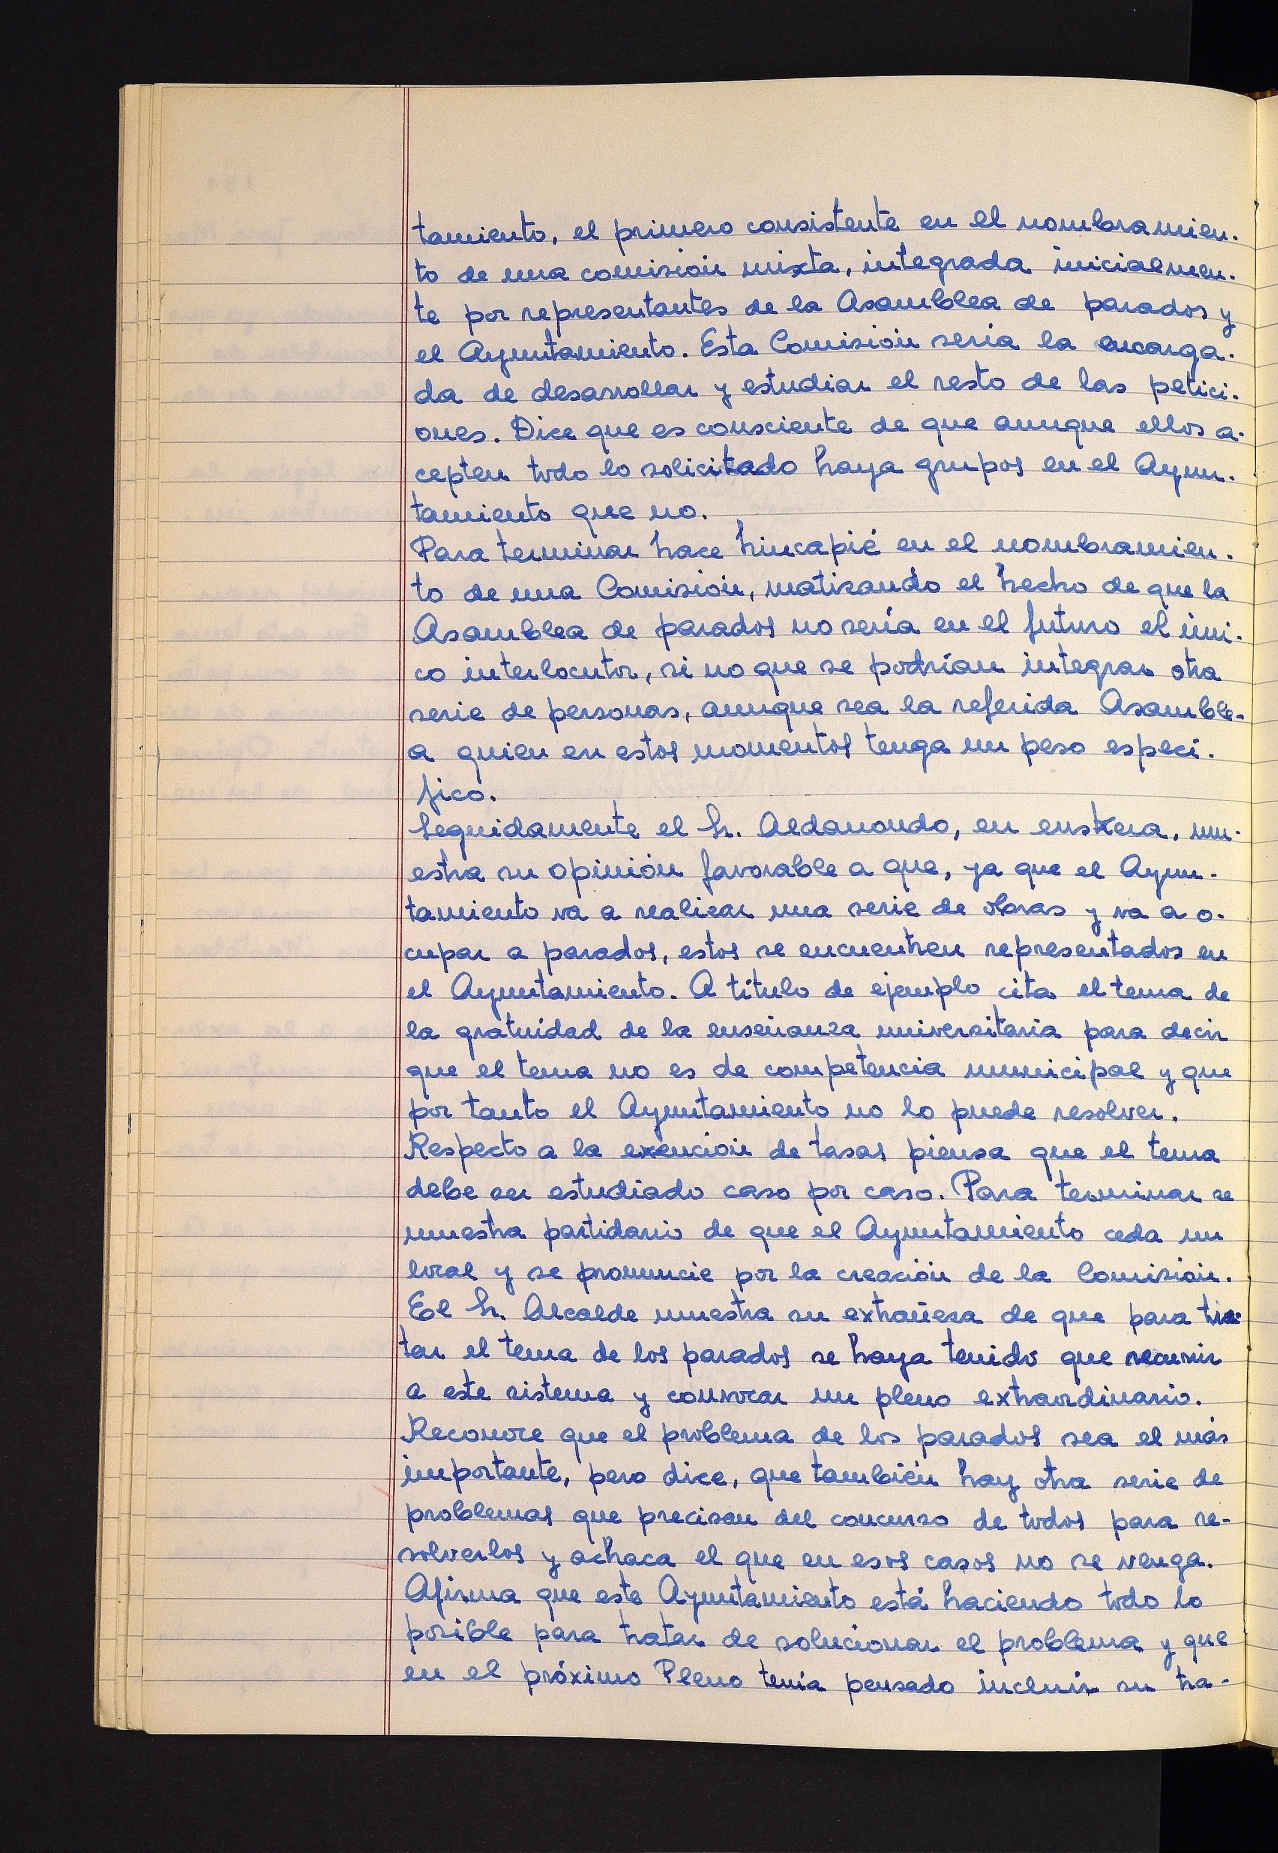 tamiento, el primero consistente en el nombramien-
to de una comisión mixta, integrada inicialmen-
te por representantes de la Asamblea de parados y
el Ayuntamiento. Esta Comisión sería la encarga-
da de desarrollar y estudiar el resto de las petici-
ones. Dice que es consciente de que aunque ellos a-
cepten todo lo solicitado haya grupos en el Ayun-
tamiento que no.
Para terminar hace hincapié en el nombramien-
to de una Comisión, matizando el hecho de que la
Asamblea de parados no sería en el futuro el úni-
co interlocutor, si no que se podrían integrar otra
serie de personas, aunque sea la referida Asamble-
a quien en estos momentos tenga un peso especí-
fico.
Seguidamente el Sr. Aldanondo, en euskera, mu-
estra su opinión favorable a que, ya que el Ayun-
tamiento va a realizar una serie de obras y va a o-
cupar a parados, estos se encuentren representados en
el Ayuntamiento. A título de ejemplo cita el tema de
la gratuidad de la enseñanza universitaria para decir
que el tema no es de competencia municipal y que
por tanto el Ayuntamiento no lo puede resolver.
Respecto a la exención de tasas piensa que el tema
debe ser estudiado caso por caso. Para terminar se
muestra partidario de que el Ayuntamiento ceda un
local y se pronuncie por la creación de la Comisión.
El Sr. Alcalde muestra su extrañeza de que para tra-
tar el tema de los parados se haya tenido que recurrir
a este sistema y convocar un pleno extraordinario.
Reconoce que el problema de los parados sea el más
importante, pero dice, que también hay otra serie de
problemas que precisan del concurso de todos para re-
solverlos y achaca el que en esos casos no se venga.
Afirma que este Ayuntamiento está haciendo todo lo
posible para tratar de solucionar el problema y que
en el próximo Pleno tenía pensado incluir su tra-